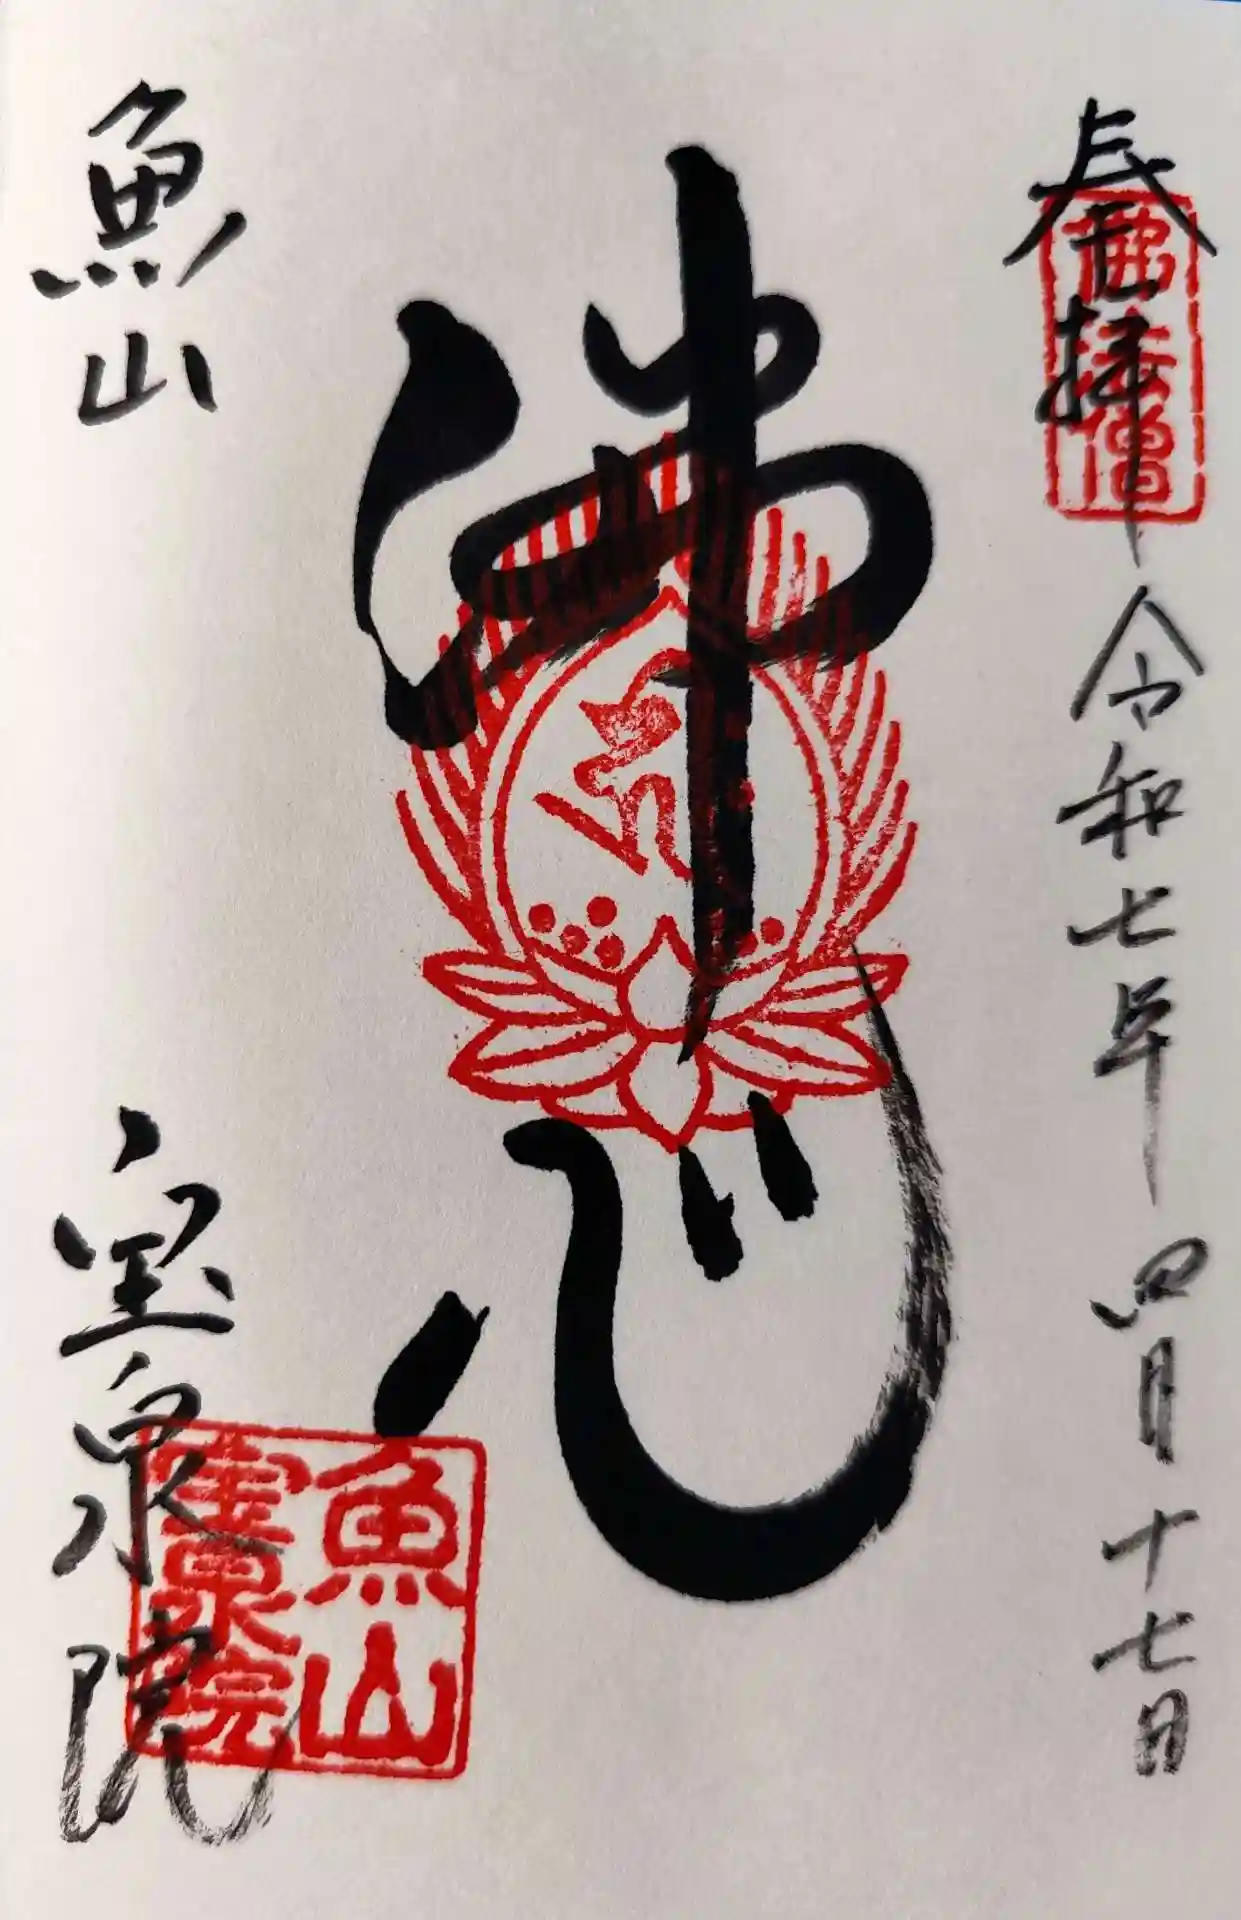 奉拝
令和七年四月十七日
佛法僧
佛心
魚山
宝泉院
魚山
寳泉院